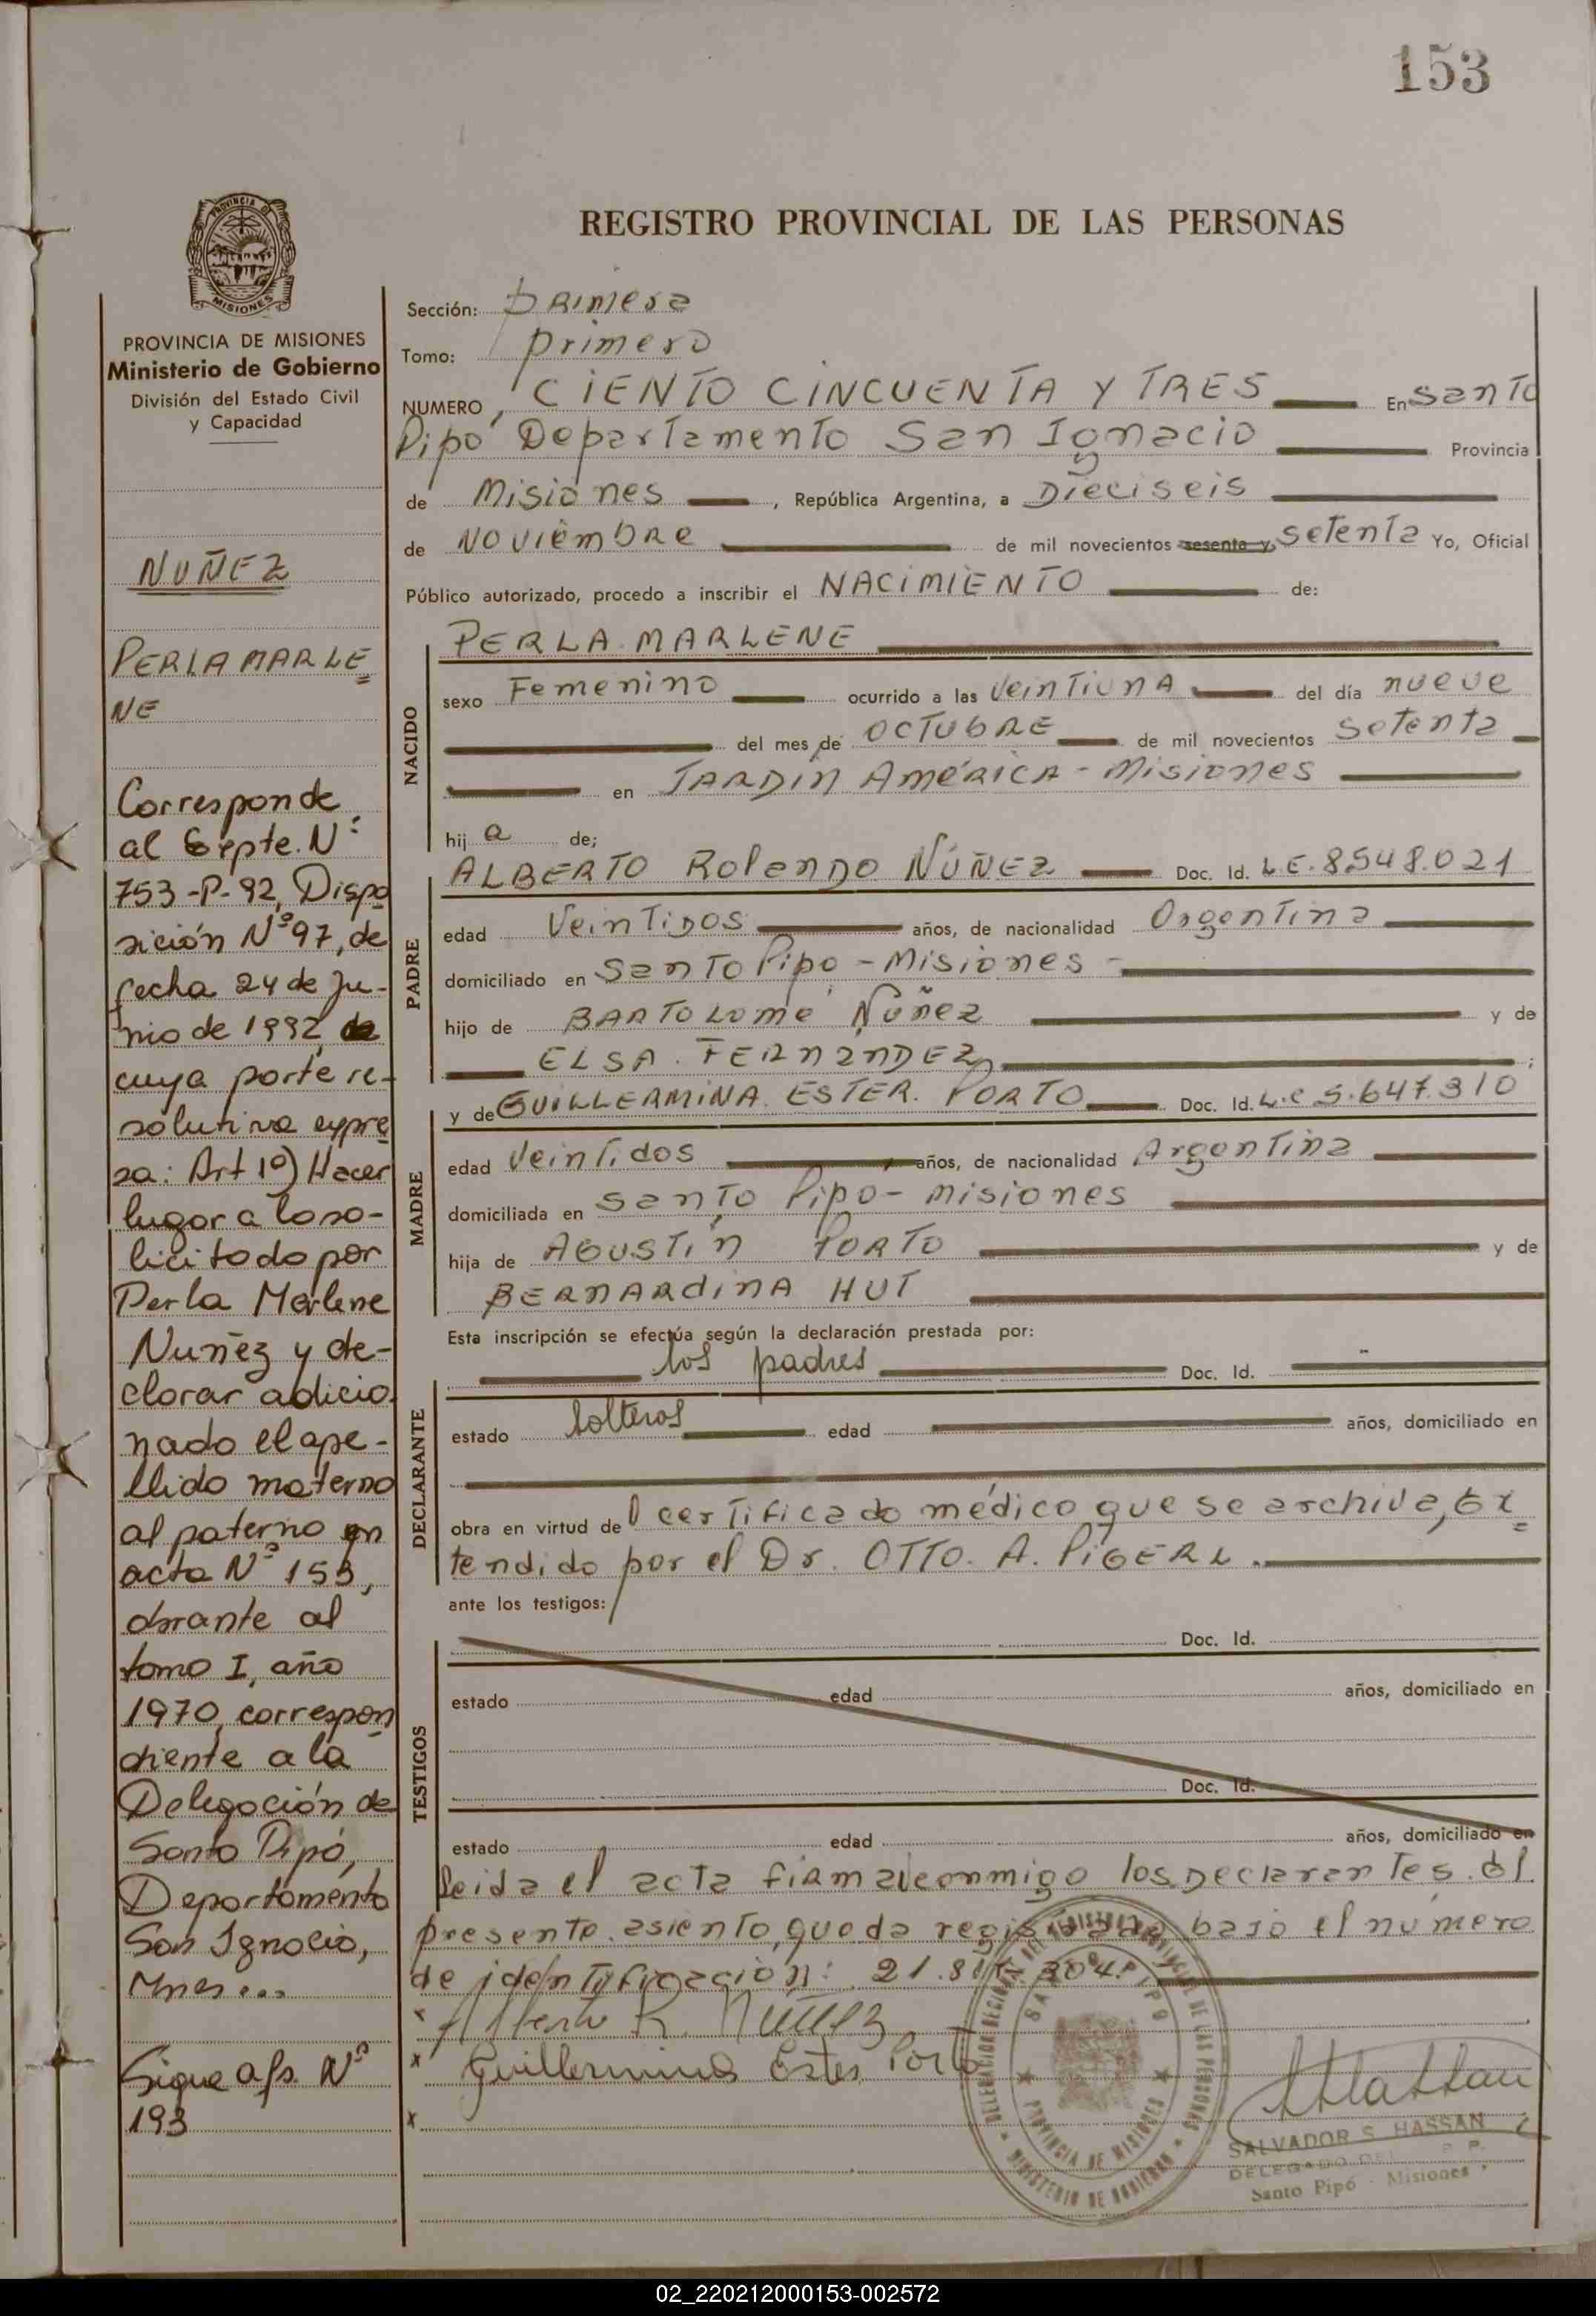 153
PROVINCIA DE
MISIONES
PROVINCIA DE MISIONES
Ministerio de Gobierno
División del Estado Civil
y Capacidad
NUÑEZ
PERLA MARLE
NE
Corresponde
al Expte. Nº
753-P-92, Dispo
sición Nº 97, de
fecha 24 de Ju-
nio de 1992, de
cuya parte re-
solutiva expre
sa: Art 1º) Hacer
lugar a lo so-
licitado por
Perla Marlene
Nuñez y de-
clarar adicio
nado el ape-
llido materno
al paterno en
acta Nº 153,
obrante al
tomo I, año
1970, correspon
diente a la
Delegación de
Santo Pipó,
Departamento
San Ignacio,
Mnes...
Sigue a fs. Nº
193
REGISTRO PROVINCIAL DE LAS PERSONAS
Sección: primera
Tomo: primero
NUMERO, CIENTO CINCUENTA Y TRES En Santo
Pipó Departamento San Ignacio Provincia
de Misiones, República Argentina, a Dieciseis
de NOViembRE de mil novecientos sesenta y, setenta Yo, Oficial
Público autorizado, procedo a inscribir el NACIMIENTO de:
NACIDO
PERLA MARLENE
sexo Femenino ocurrido a las VeinTiunA del día nueve
del mes de OCTUBRE de mil novecientos setenta
en JARDIN AméRICA - Misiones
hij a de;
PADRE
ALBERTO Rolando NÚÑEZ Doc. Id. L.E. 8.548.021
edad VeinTiDOS años, de nacionalidad Argentina
domiciliado en Santo Pipó - Misiones -
hijo de BARTOLOmé Núñez y de
ELSA. FERNÁNDEZ ;
MADRE
y de GUILLERMINA. ESTER. PORTO Doc. Id. L.C 5.647.310
edad VeinTidos años, de nacionalidad Argentina
domiciliada en Santo Pipó - misiones
hija de AGUSTÍN PORTO y de
BERNARdINA HUT
Esta inscripción se efectúa según la declaración prestada por:
DECLARANTE
los padres Doc. Id.
estado solteros edad años, domiciliado en
obra en virtud del certificado médico que se archiva, ex
tendido por el Dr. OTTO. A. PIGERL.
ante los testigos:
TESTIGOS
Doc. Id.
estado edad años, domiciliado en
Doc. Id.
estado edad años, domiciliado en
Leida el acta firman conmigo los Declarantes. el
presente asiento, queda registrado bajo el número
de identificación: 21.
Alberto R. Núñez
x Guillermina Ester Porto
x
DELEGACION REGISTRO PROVINCIAL DE LAS PERSONAS
SANTO PIPO
PROVINCIA DE MISIONES
MINISTERIO DE GOBIERNO
SALVADOR S. HASSAN
DELEGADO DEL R. P. P.
Santo Pipó - Misiones
02_220212000153-002572